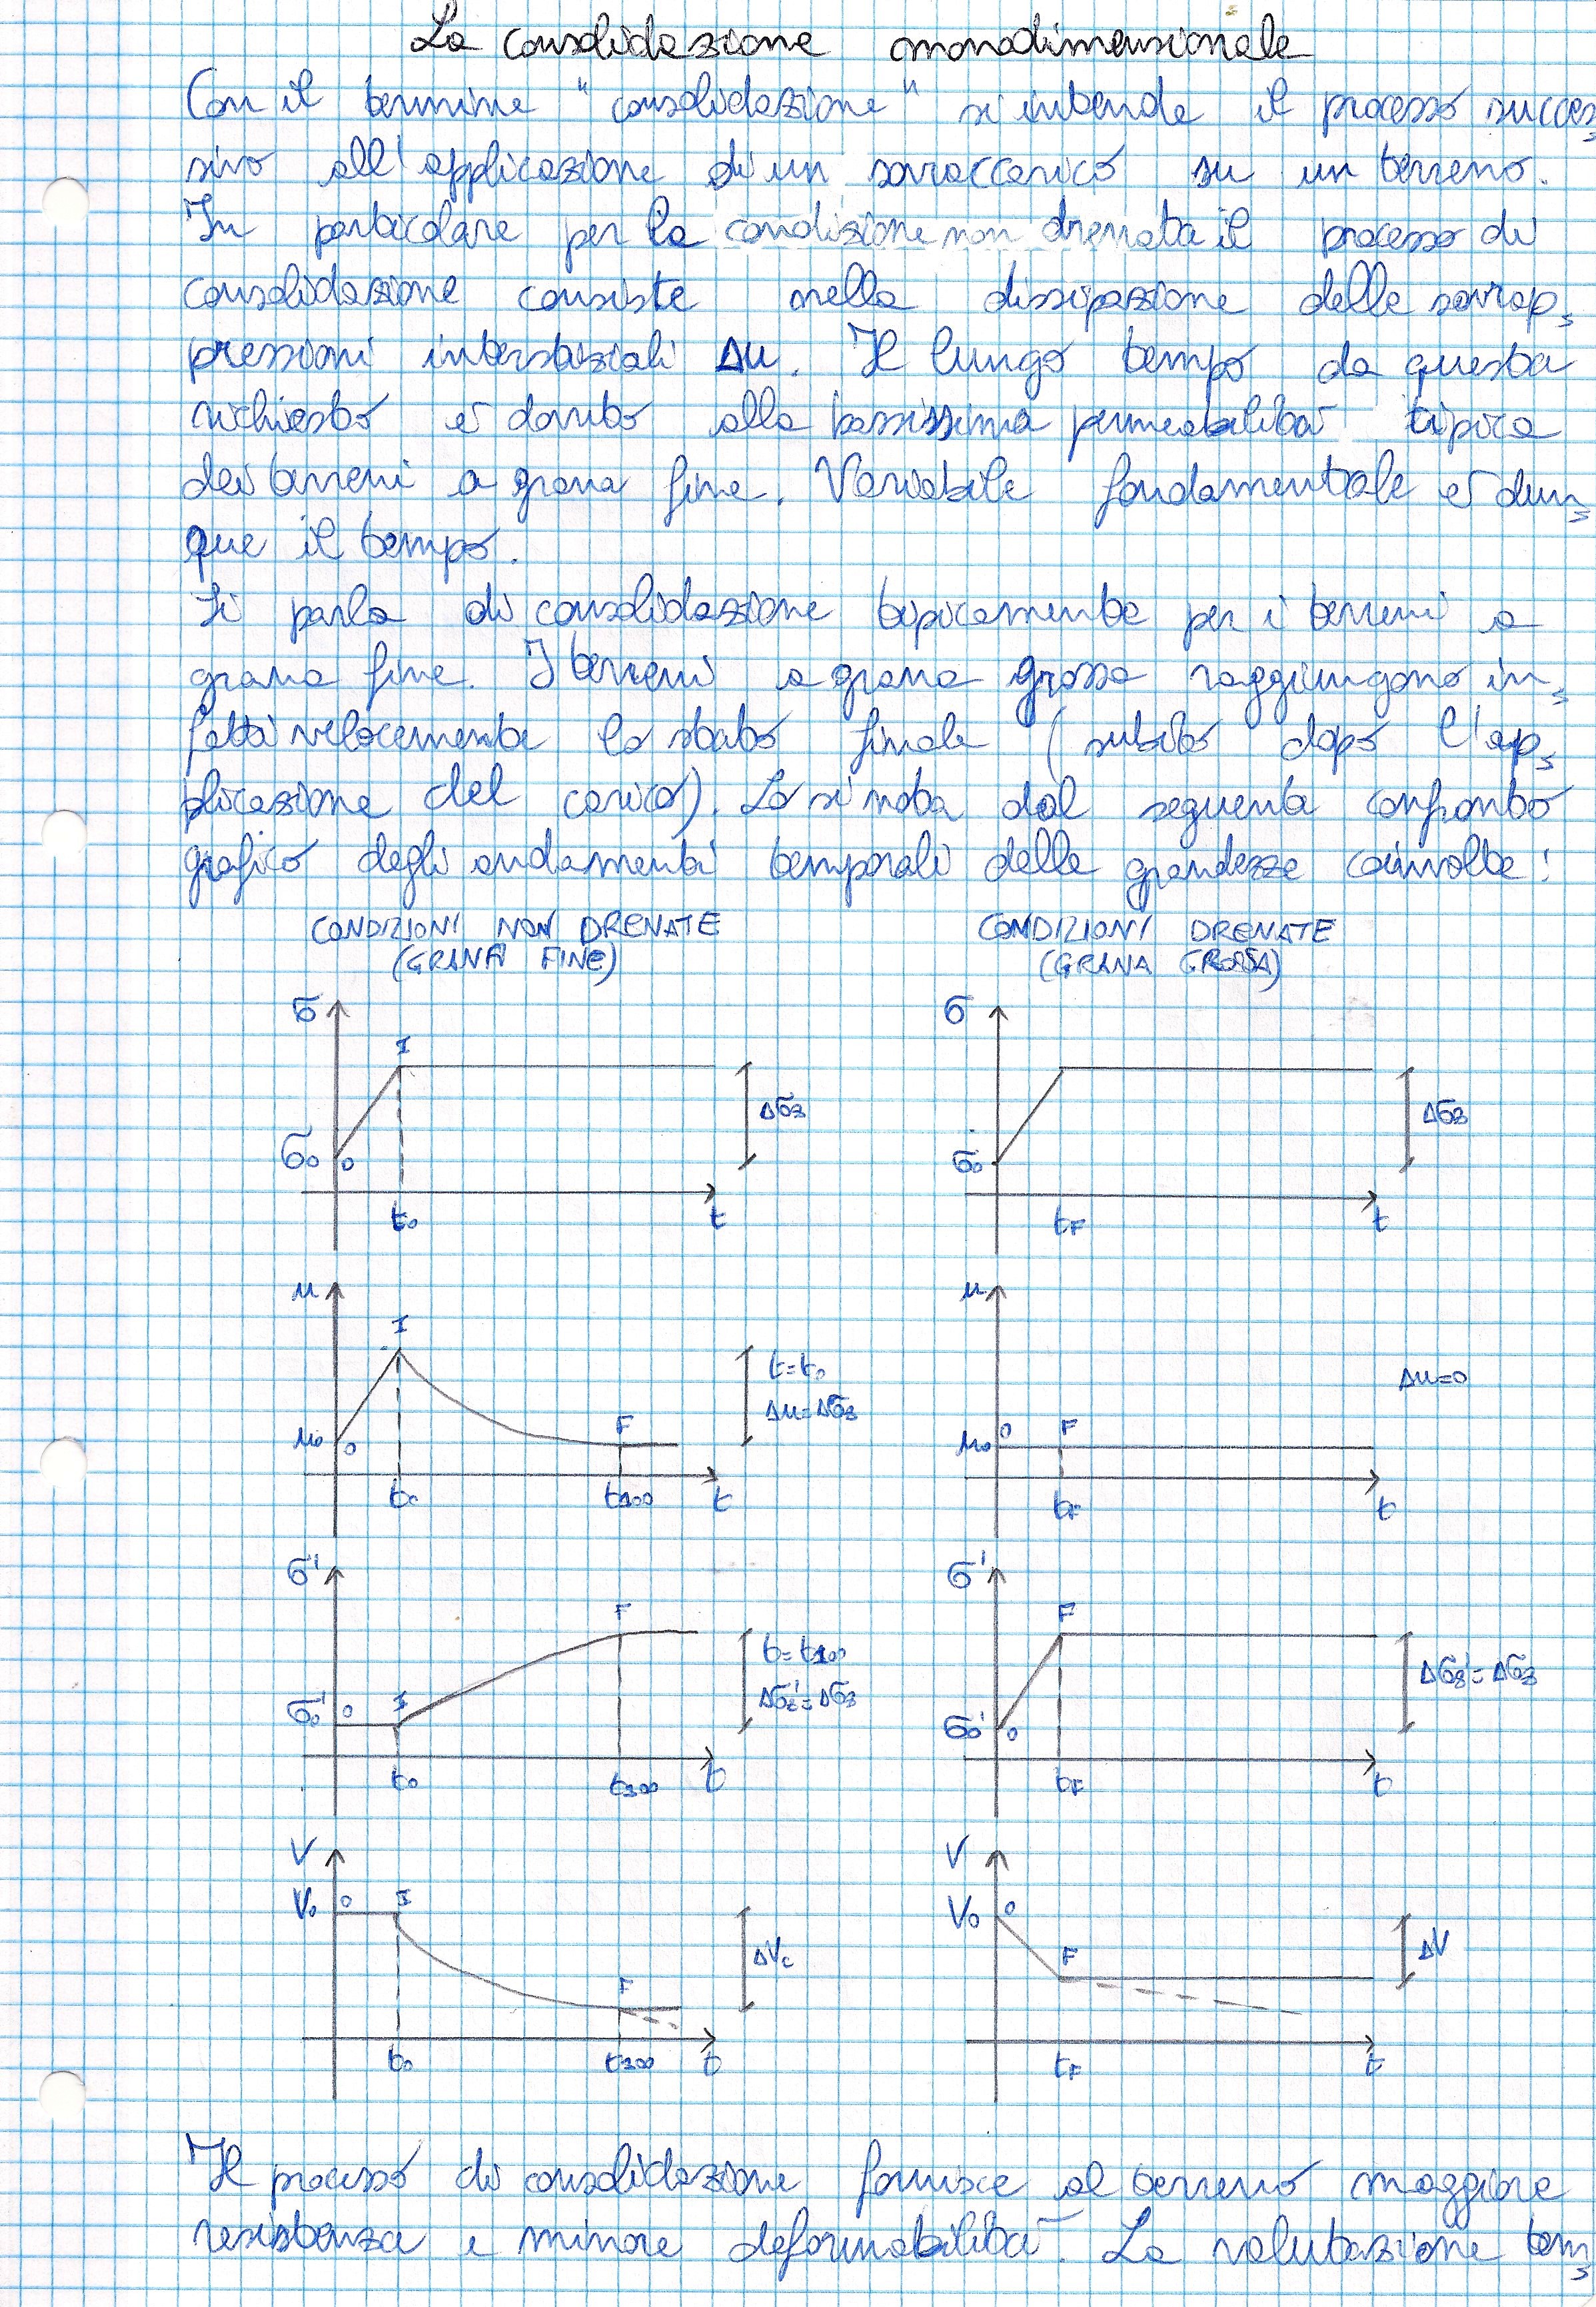 La consolidazione monodimensionale
Con il termine "consolidazione" si intende il processo succes
sivo all'applicazione di un sovraccarico su un terreno.
In particolare per la condizione non drenata il processo di
consolidazione consiste nella dissipazione delle sovrap
pressioni interstiziali Δu. Il lungo tempo da questa
richiesto è dovuto alla bassissima permeabilità tipica
dei terreni a grana fine. Variabile fondamentale è dun
que il tempo.
Si parla di consolidazione tipicamente per i terreni a
grana fine. I terreni a grana grossa raggiungono in
fatti velocemente lo stato finale (subito dopo l'ap
plicazione del carico). Lo si nota dal seguente confronto
grafico degli andamenti temporali delle grandezze coinvolte:
CONDIZIONI NON DRENATE CONDIZIONI DRENATE
(GRANA FINE) (GRANA GROSSA)
σ I Δσz σ Δσz
σ0 0 σ0
t0 t tF t
u I t=t0 u Δu=0
Δu=Δσz
u0 0 F u0 0 F
t0 t100 t tF t
σ' F t=t100 σ' F
Δσz'=Δσz Δσz'=Δσz
σ0' 0 I σ0' 0
t0 t100 t tF t
V V
V0 0 I ΔVc V0 0 ΔV
F F
t0 t100 t tF t
Il processo di consolidazione fornisce al terreno maggiore
resistenza e minore deformabilità. La valutazione tem